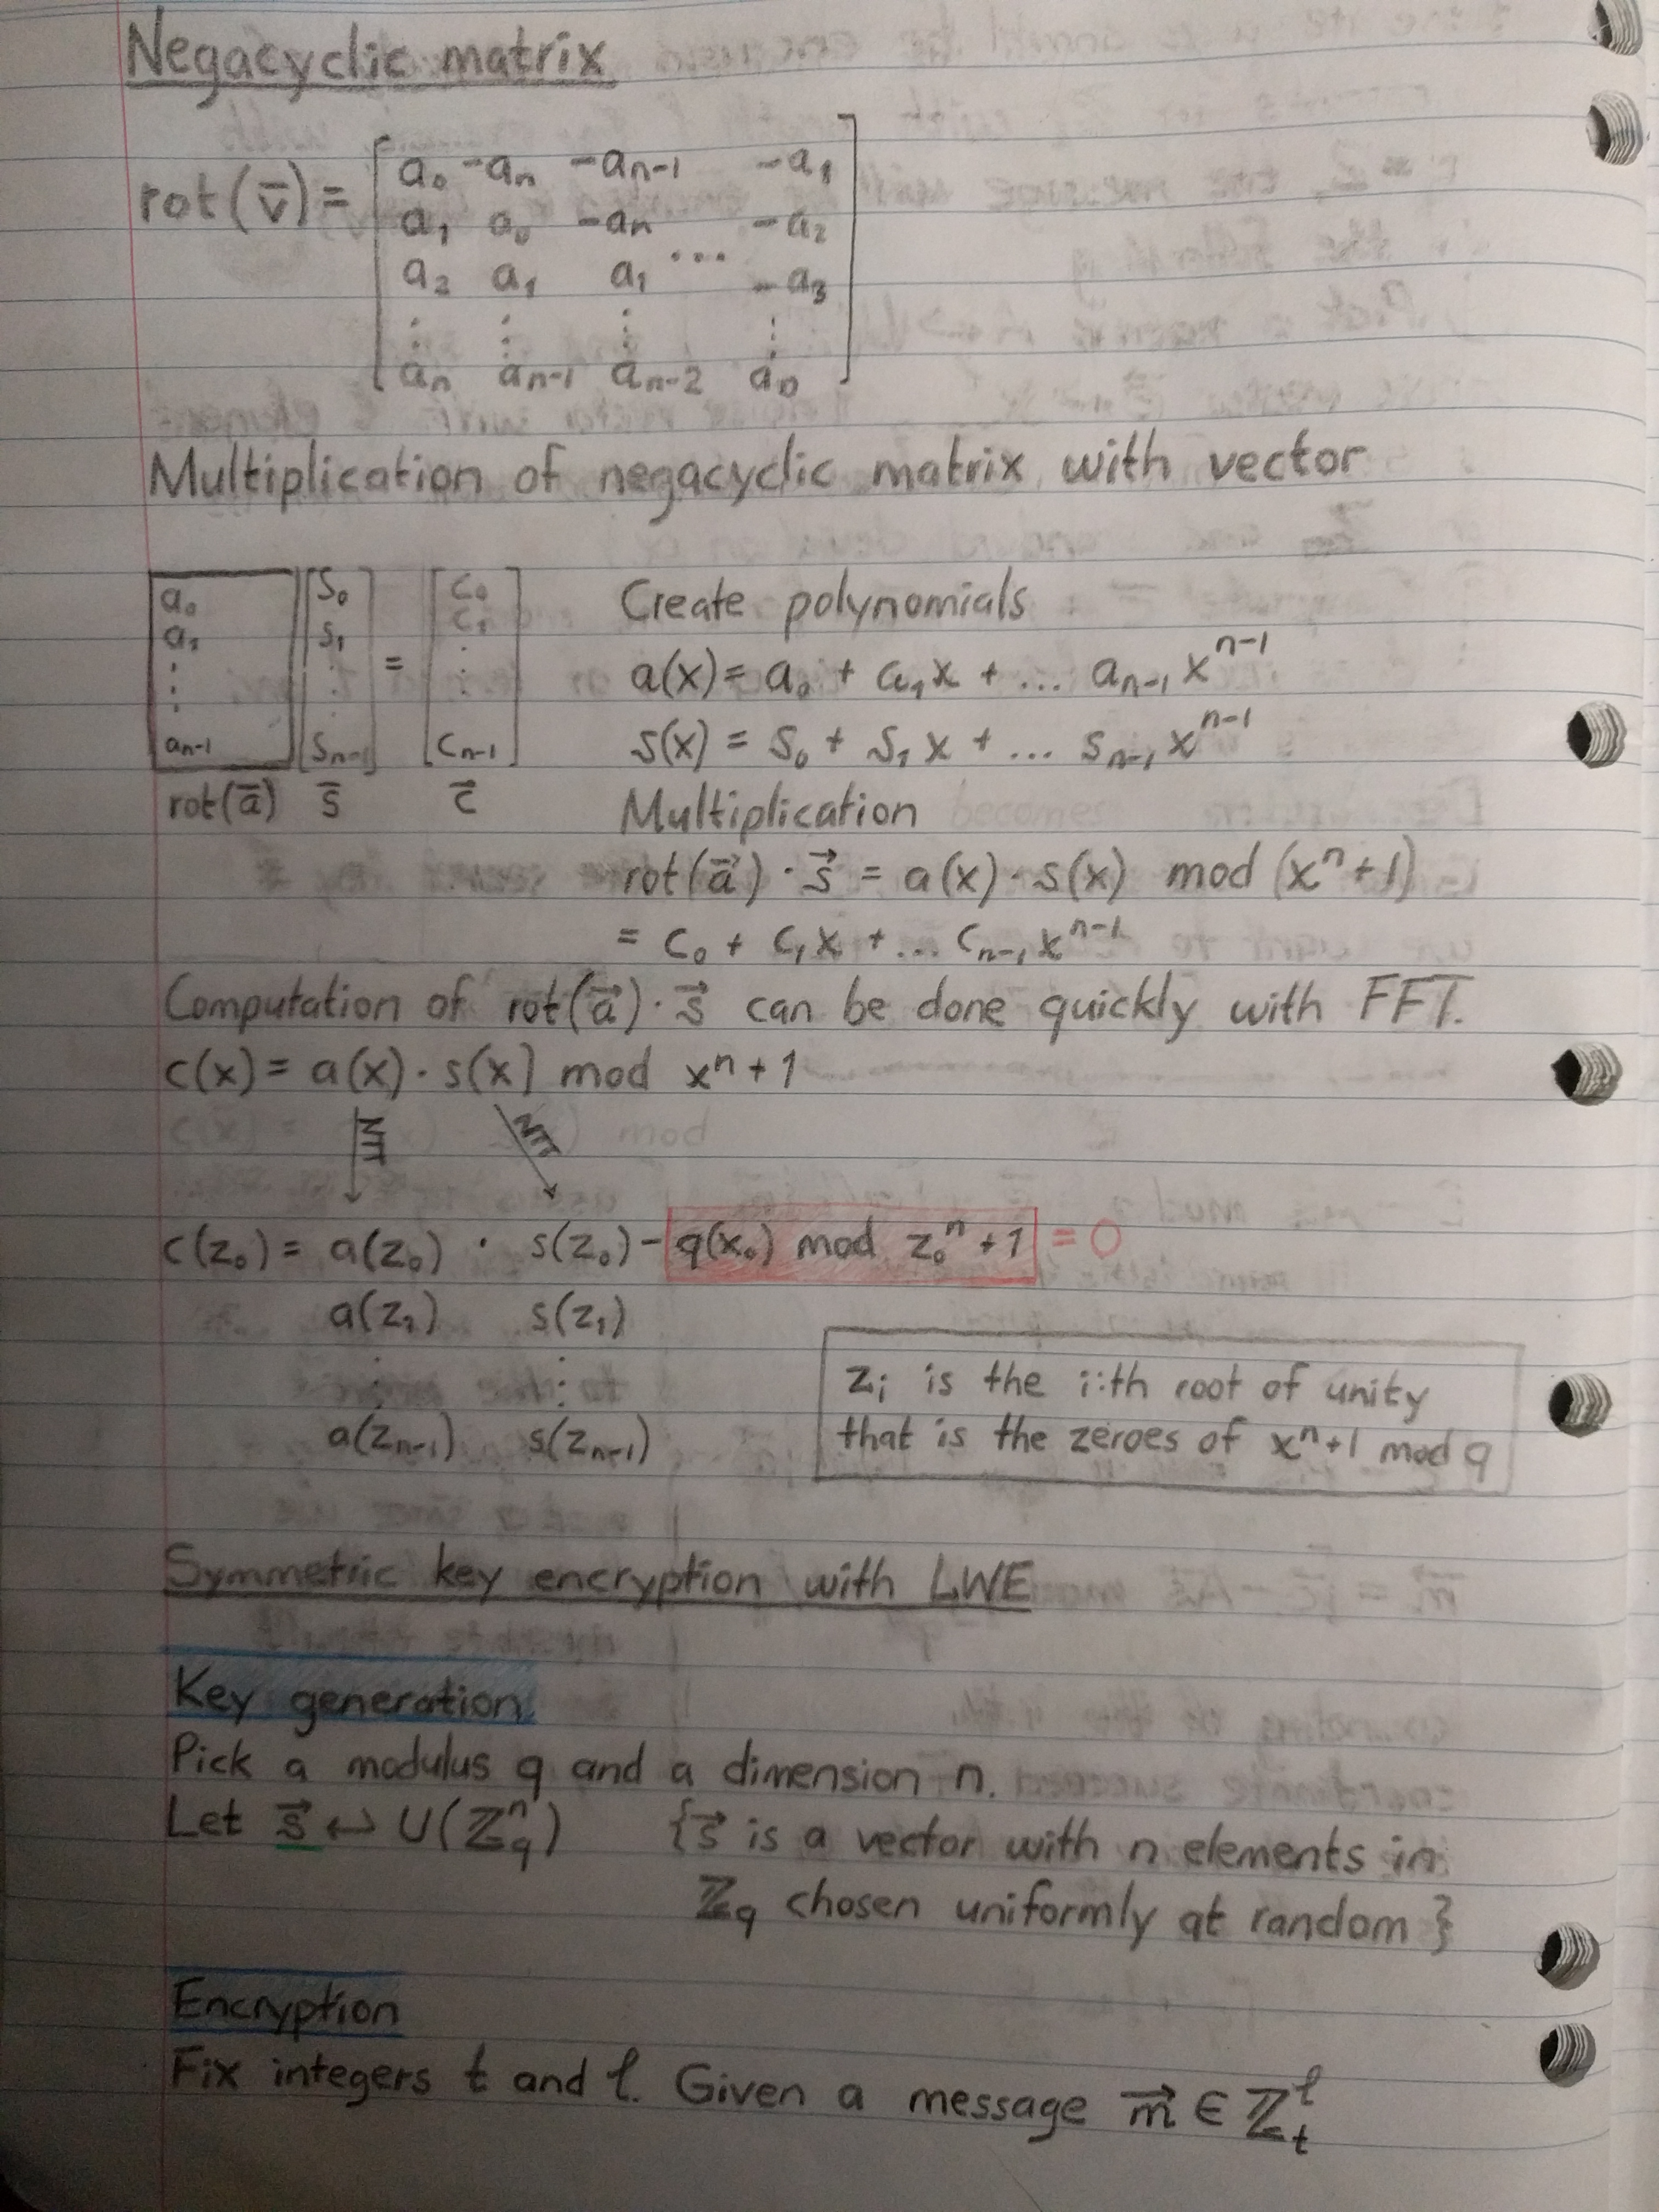 Negacyclic matrix
rot(v̄) = [ a₀ -aₙ -aₙ₋₁ -a₁
a₁ a₀ -aₙ -a₂
a₂ a₁ a₁ ... -a₃
⋮ ⋮ ⋮ ⋮
aₙ aₙ₋₁ aₙ₋₂ a₀ ]
Multiplication of negacyclic matrix with vector
a₀ s₀ c₀
a₁ s₁ = c₁
⋮ ⋮ ⋮
aₙ₋₁ sₙ₋₁ cₙ₋₁
rot(ā) s̄ c⃗
Create polynomials
a(x) = a₀ + a₁x + ... aₙ₋₁xⁿ⁻¹
s(x) = s₀ + s₁x + ... sₙ₋₁xⁿ⁻¹
Multiplication becomes
rot(a⃗) · s⃗ = a(x) · s(x) mod (xⁿ+1)
= c₀ + c₁x + ... cₙ₋₁xⁿ⁻¹
Computation of rot(a⃗) · s⃗ can be done quickly with FFT.
c(x) = a(x) · s(x) mod xⁿ+1
NTT NTT
c(z₀) = a(z₀) · s(z₀) - q(x₀) mod z₀ⁿ+1 = 0
a(z₁) s(z₁)
⋮ ⋮
a(zₙ₋₁) s(zₙ₋₁)
zᵢ is the i:th root of unity
that is the zeroes of xⁿ+1 mod q
Symmetric key encryption with LWE
Key generation
Pick a modulus q and a dimension n.
Let s⃗ ↩ U(ℤ_qⁿ) {s⃗ is a vector with n elements in
ℤ_q chosen uniformly at random}
Encryption
Fix integers t and ℓ. Given a message m⃗ ∈ ℤ_t^ℓ